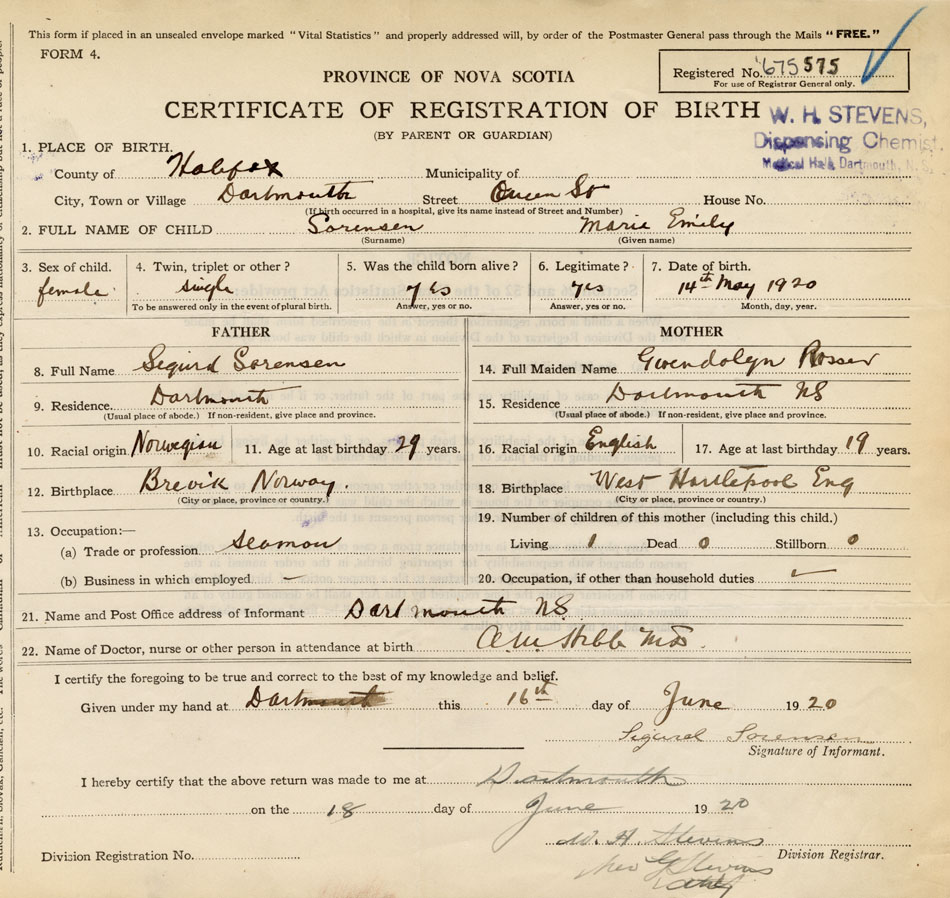 This form if placed in an unsealed envelope marked "Vital Statistics" and properly addressed will, by order of the Postmaster General pass through the Mails "FREE."
FORM 4.
Registered No. 675575
For use of Registrar General only.
PROVINCE OF NOVA SCOTIA
CERTIFICATE OF REGISTRATION OF BIRTH
(BY PARENT OR GUARDIAN)
W. H. STEVENS,
Dispensing Chemist,
Medical Hall, Dartmouth, N. S.
1. PLACE OF BIRTH.
County of Halifax Municipality of
City, Town or Village Dartmouth Street Queen St House No.
(If birth occurred in a hospital, give its name instead of Street and Number)
2. FULL NAME OF CHILD Sorensen Marie Emily
(Surname) (Given name)
3. Sex of child. female
4. Twin, triplet or other? single
To be answered only in the event of plural birth.
5. Was the child born alive? yes
Answer, yes or no.
6. Legitimate? yes
Answer, yes or no.
7. Date of birth. 14th May 1920
Month, day, year.
FATHER
8. Full Name Sigurd Sorensen
9. Residence. Dartmouth
(Usual place of abode.) If non-resident, give place and province.
10. Racial origin Norwegian 11. Age at last birthday 29 years.
12. Birthplace Brevik Norway.
(City or place, province or country.)
13. Occupation:—
(a) Trade or profession seaman
(b) Business in which employed —
MOTHER
14. Full Maiden Name Gwendolyn Rosser
15. Residence Dartmouth NS
(Usual place of abode.) If non-resident, give place and province.
16. Racial origin English 17. Age at last birthday 19 years.
18. Birthplace West Hartlepool Eng
(City or place, province or country.)
19. Number of children of this mother (including this child.)
Living 1 Dead 0 Stillborn 0
20. Occupation, if other than household duties —
21. Name and Post Office address of Informant Dartmouth NS
22. Name of Doctor, nurse or other person in attendance at birth Hebb MD.
I certify the foregoing to be true and correct to the best of my knowledge and belief.
Given under my hand at Dartmouth this 16th day of June 1920
Sigurd Sorensen
Signature of Informant.
I hereby certify that the above return was made to me at Dartmouth
on the 18 day of June 1920
W. H. Stevens
Division Registration No. Division Registrar.
Stevens